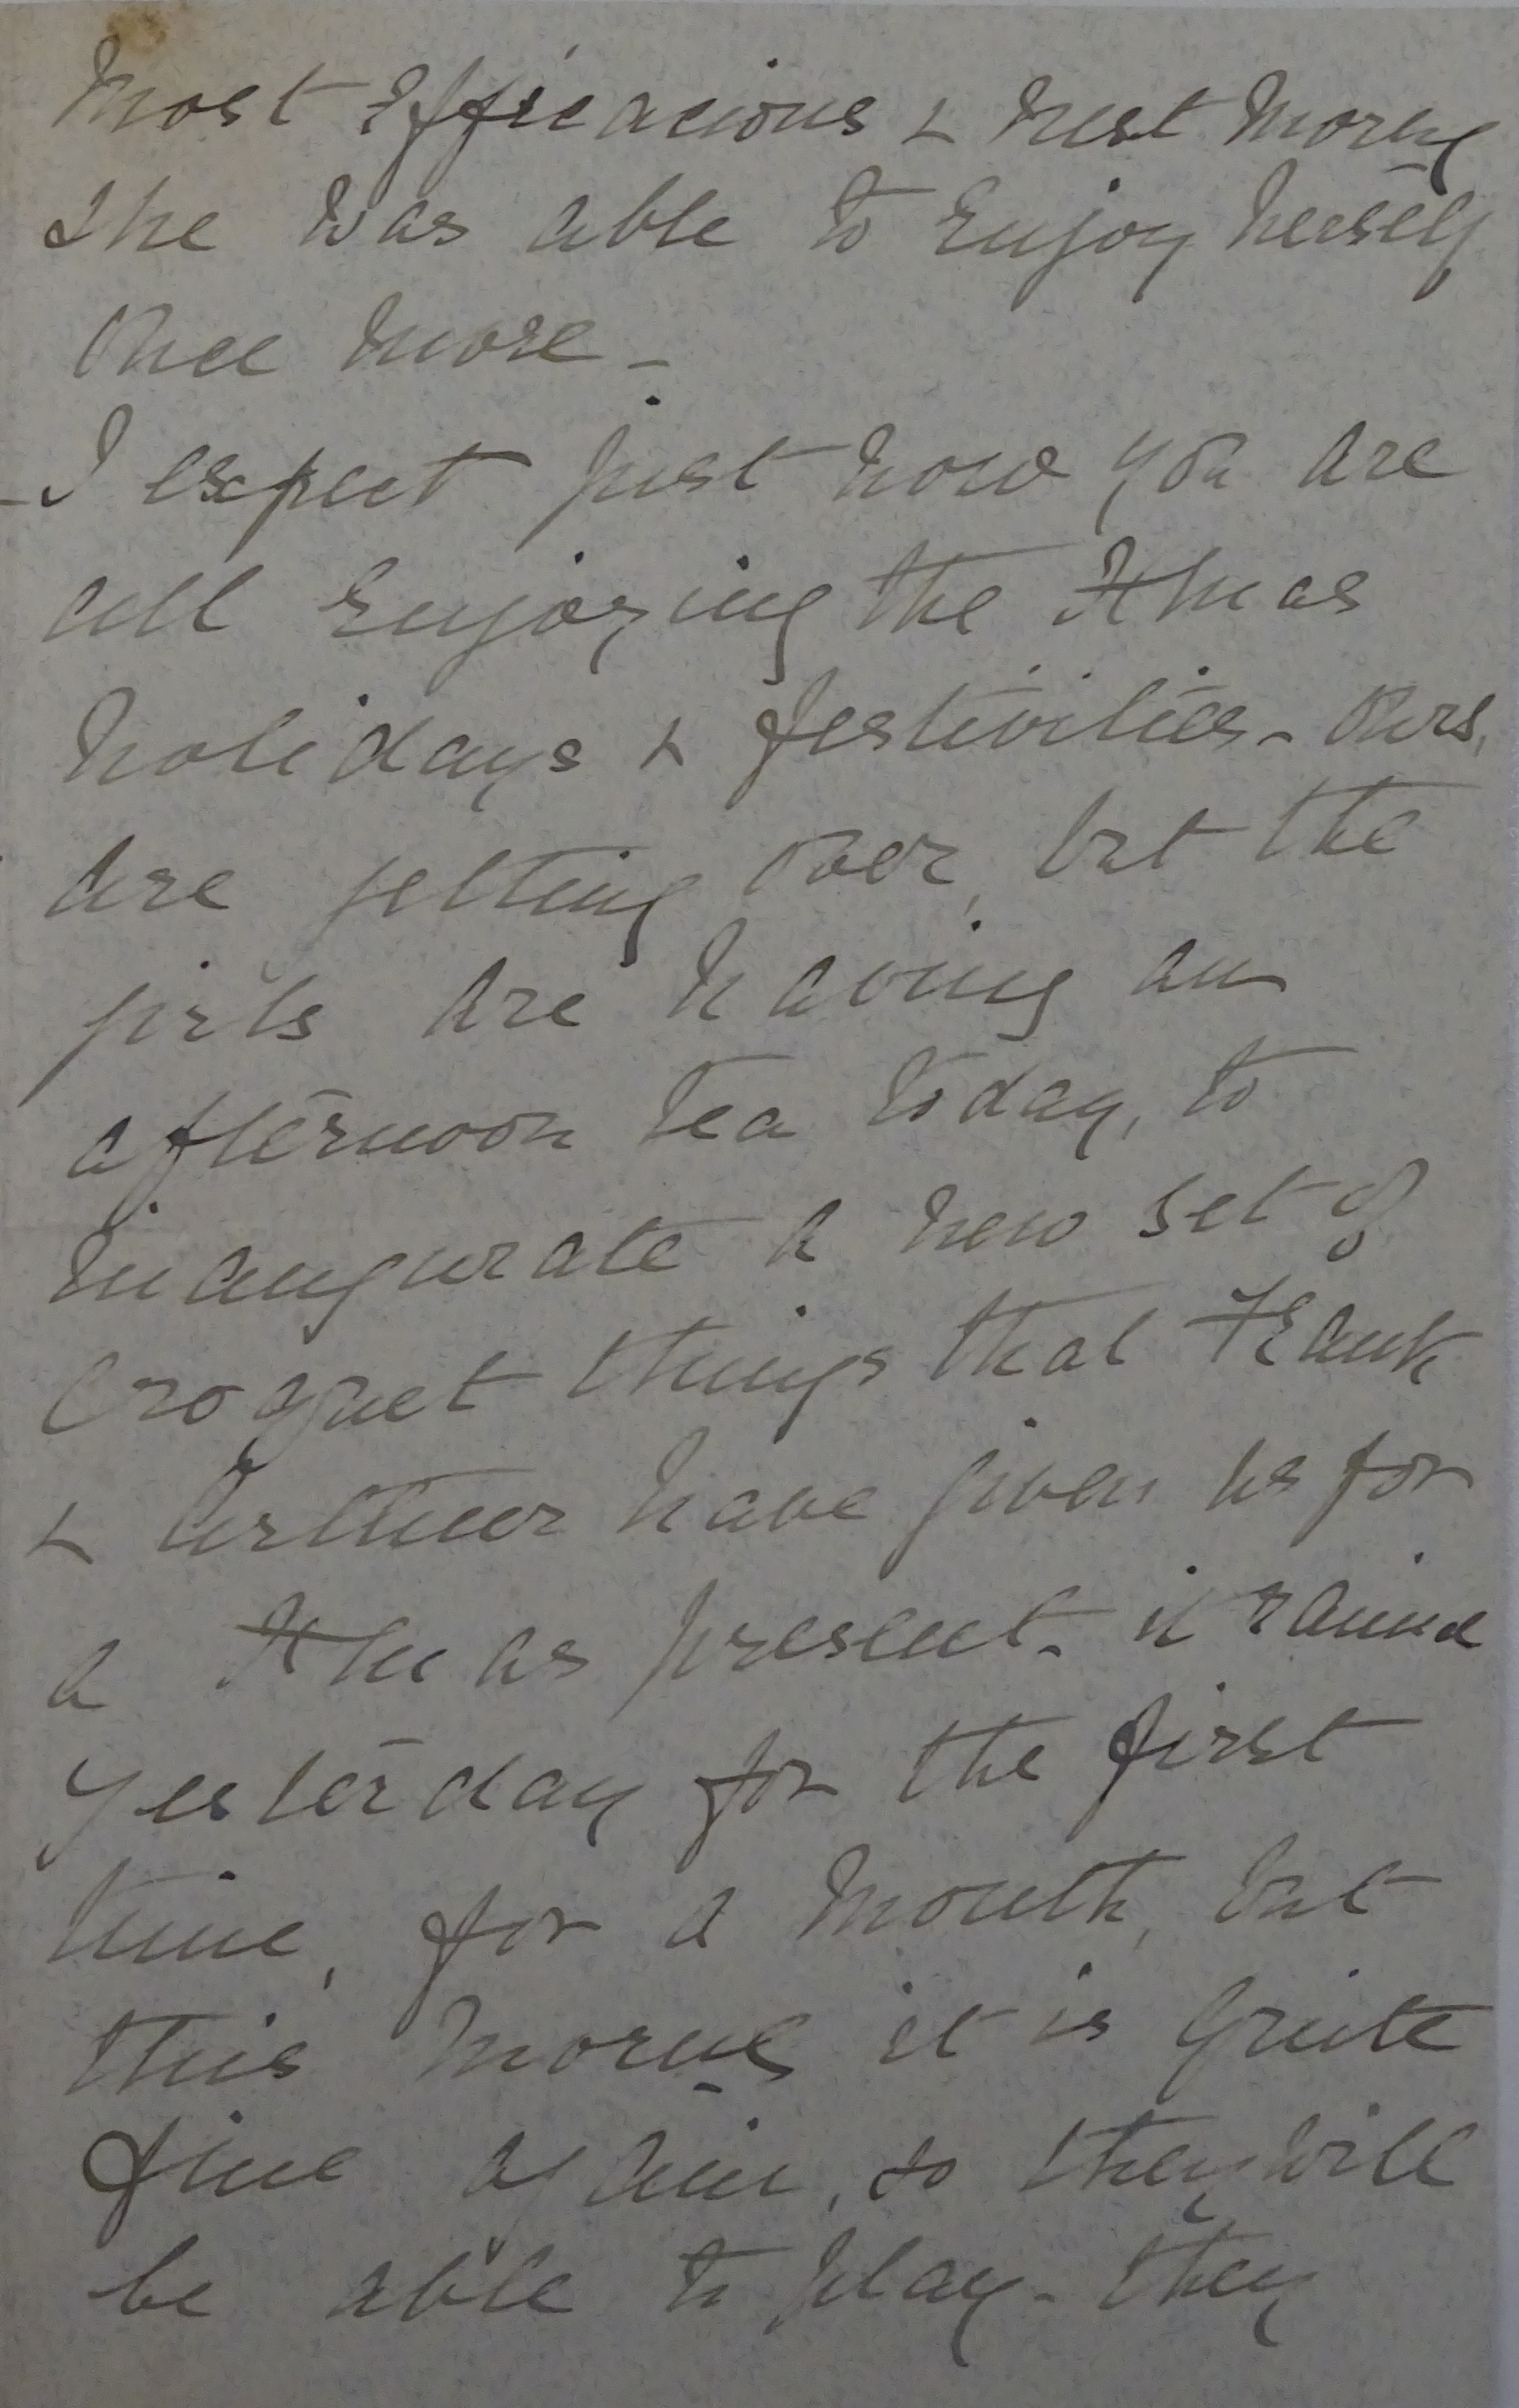 most efficacious & next morng
she was able to enjoy herself
once more -
- I expect just now you are
all enjoying the Xmas
holidays & festivities - ours,
are getting over, but the
girls are having an
afternoon tea today, to
inaugurate a new set of
croquet things that Frank
& Arthur have given us for
a Xmas present - it rained
yesterday for the first
time, for a month, but
this morng it is quite
fine again, so they will
be able to play - they